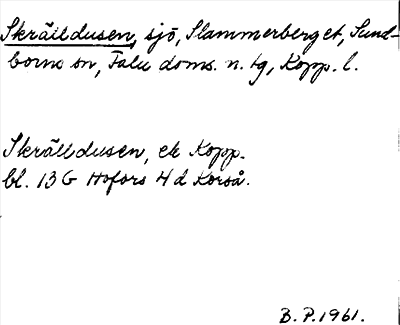 Skrälldusen, sjö, Slammerberget, Sund-
borns sn, Falu doms. n. tg, Kopp. l.
Skrälldusen, ek Kopp.
bl. 13 G Hofors 4 d Korså.
B. P. 1961.